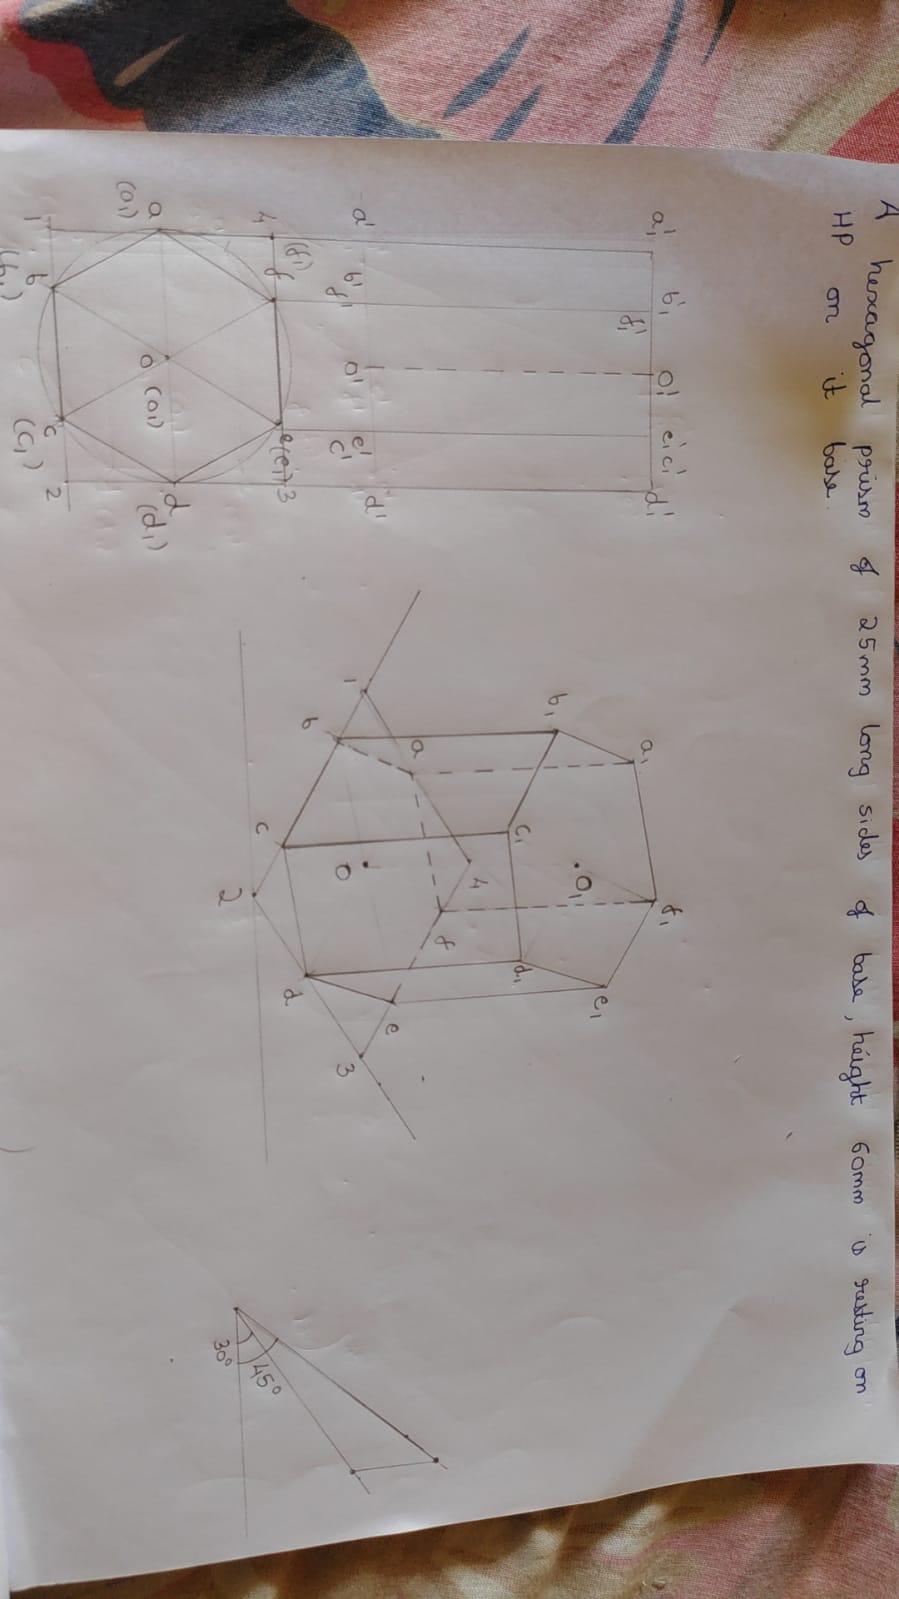 A hexagonal prism of 25mm long sides of base, height 60mm is resting on
HP on it base.
a₁' b₁' O₁' e₁' c₁' d₁'
f₁'
a' b' f' O' e' c' d'
4 (f₁) f e(e₁) 3
a (a₁) O (O₁) d (d₁)
1 b (b₁) c (c₁) 2
a₁ f₁
b₁ O₁ e₁
c₁ d₁
4
a f
e
1 O 3
b d
c
2
45°
30°